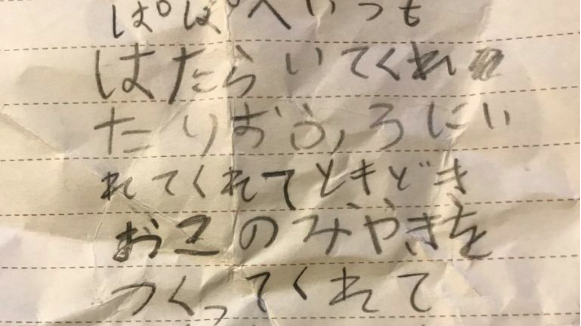 ぱぱへいつも
はたらいてくれ
たりおふろにい
れてくれてときどき
おこのみやきを
つくってくれて